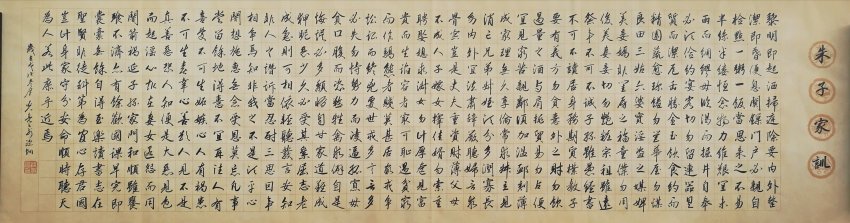 朱子家訓
黎明即起洒掃庭除要內外整
潔即昏便息關鎖門戶必親自
檢點一粥一飯當思來之不易
半絲半縷恒念物力維艱宜未
雨而綢繆毋臨渴而掘井自奉
必須儉約宴客切勿留連器具
質而潔瓦缶勝金玉飲食約而
精園蔬愈珍饈勿營華屋勿謀
良田三姑六婆實淫盜之媒婢
美妾嬌非閨房之福童僕勿用
俊美妻妾切忌艷妝宗祖雖遠
祭祀不可不誠子孫雖愚經書
不可不讀居身務期質樸教子
要有義方勿貪意外之財勿飲
過量之酒與肩挑貿易勿占便
宜見窮苦親鄰須加溫卹刻薄
成家理無久享倫常乖舛立見
消亡兄弟叔姪須分多潤寡長
幼內外宜法肅辭嚴聽婦言乖
骨肉豈是丈夫重資財薄父母
不成人子嫁女擇佳婿毋索重
聘娶媳求淑女勿計厚奩見富
貴而生諂容者最可恥遇貧窮
而作驕態者賤莫甚居家戒爭
訟訟則終凶處世戒多言言多
必失勿恃勢力而凌逼孤寡毋
貪口腹而恣殺牲禽乖僻自是
悔誤必多頹惰自甘家道難成
狎昵惡少久必受其累屈志老
成急則可相依輕聽發言安知
非人之譖訴當忍耐三思因事
相爭焉知非我之不是須平心
闇想施惠無念受恩莫忘凡事
當留餘地得意不宜再往人有
喜慶不可生妒嫉心人有禍患
不可生喜幸心善欲人見不是
真善惡恐人知便是大惡見色
而起淫心報在妻女匿怨而用
闇箭禍延子孫家門和順雖饔
飧不濟亦有餘歡國課早完即
囊橐無餘自得至樂讀書志在
聖賢非徒科第為官心存君國
豈計身家守分安命順時聽天
為人若此庶乎近焉